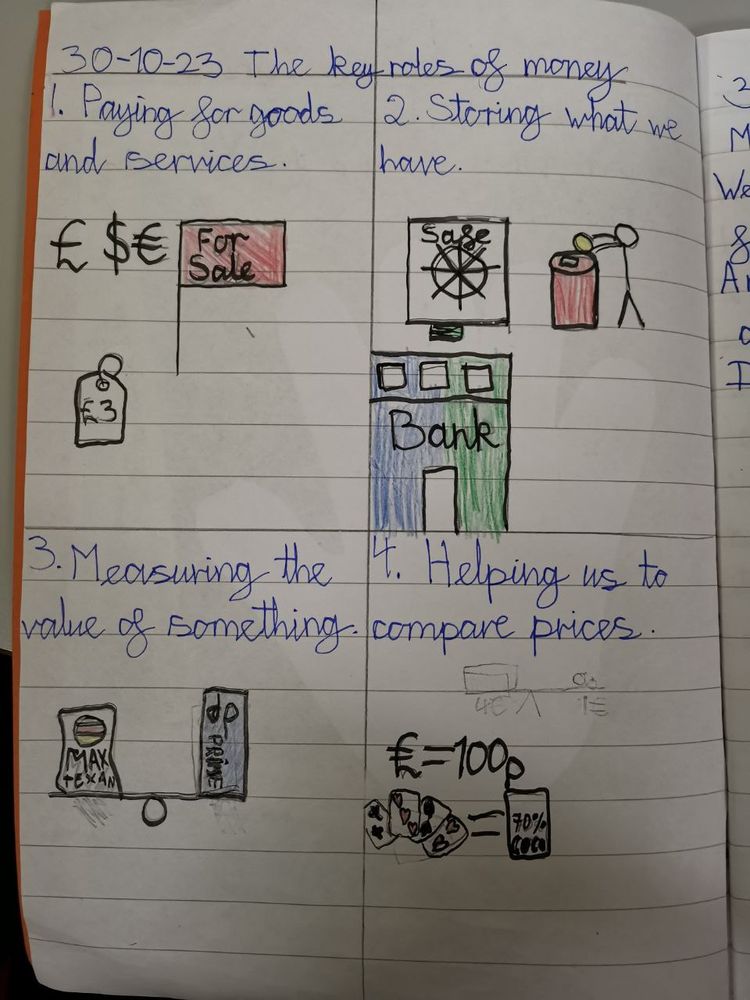 30-10-23 The key roles of money
1. Paying for goods
and services.
£ $ €
For
Sale
£3
2. Storing what we
have.
Safe
Bank
3. Measuring the
value of something.
MAX
TEXAN
PRIME
4. Helping us to
compare prices.
4£ 1£
£=100p
=
70%
COCO